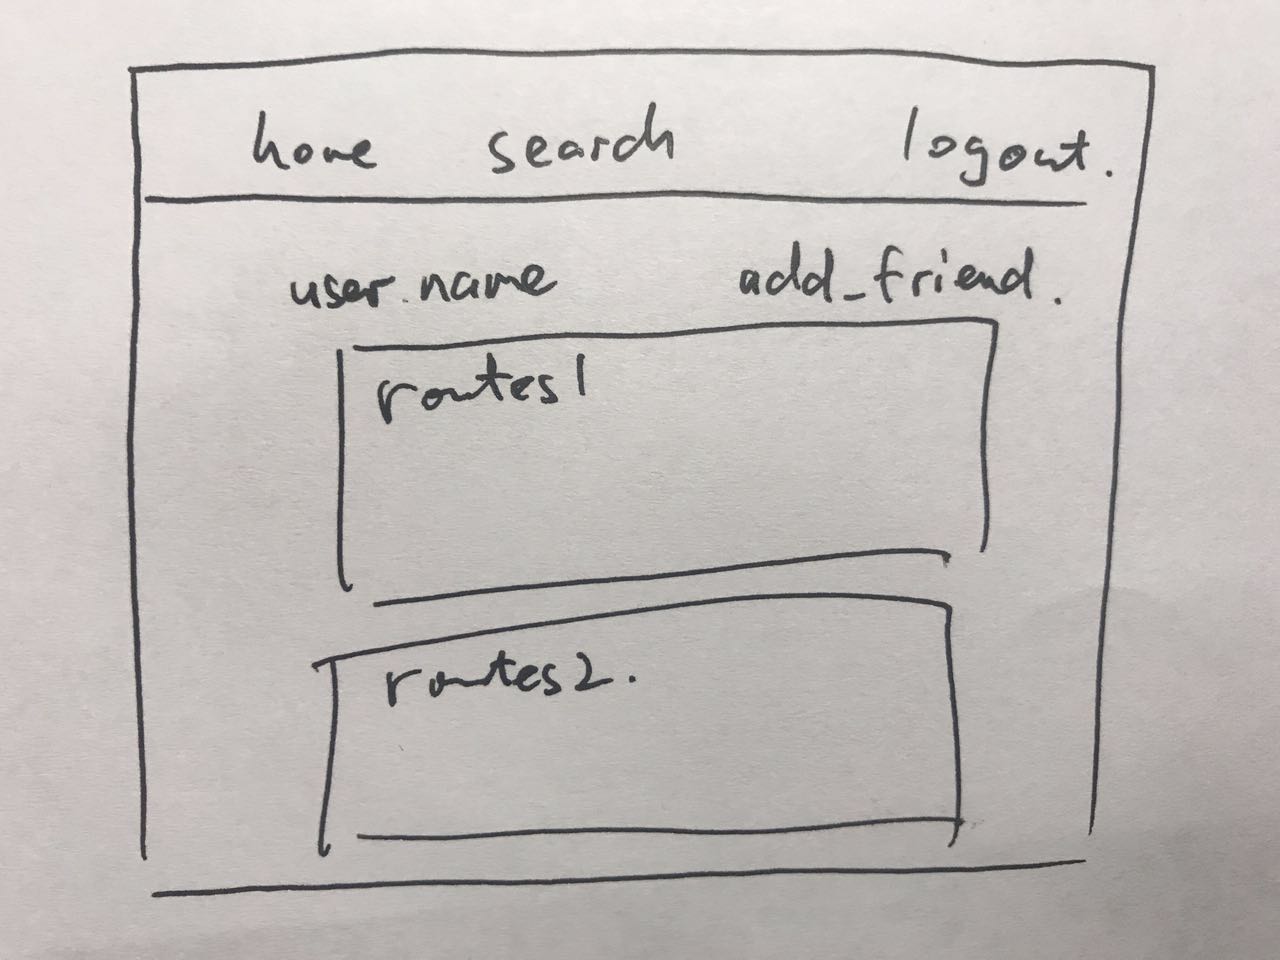 home search logout.
user.name add_friend.
routes1
routes2.